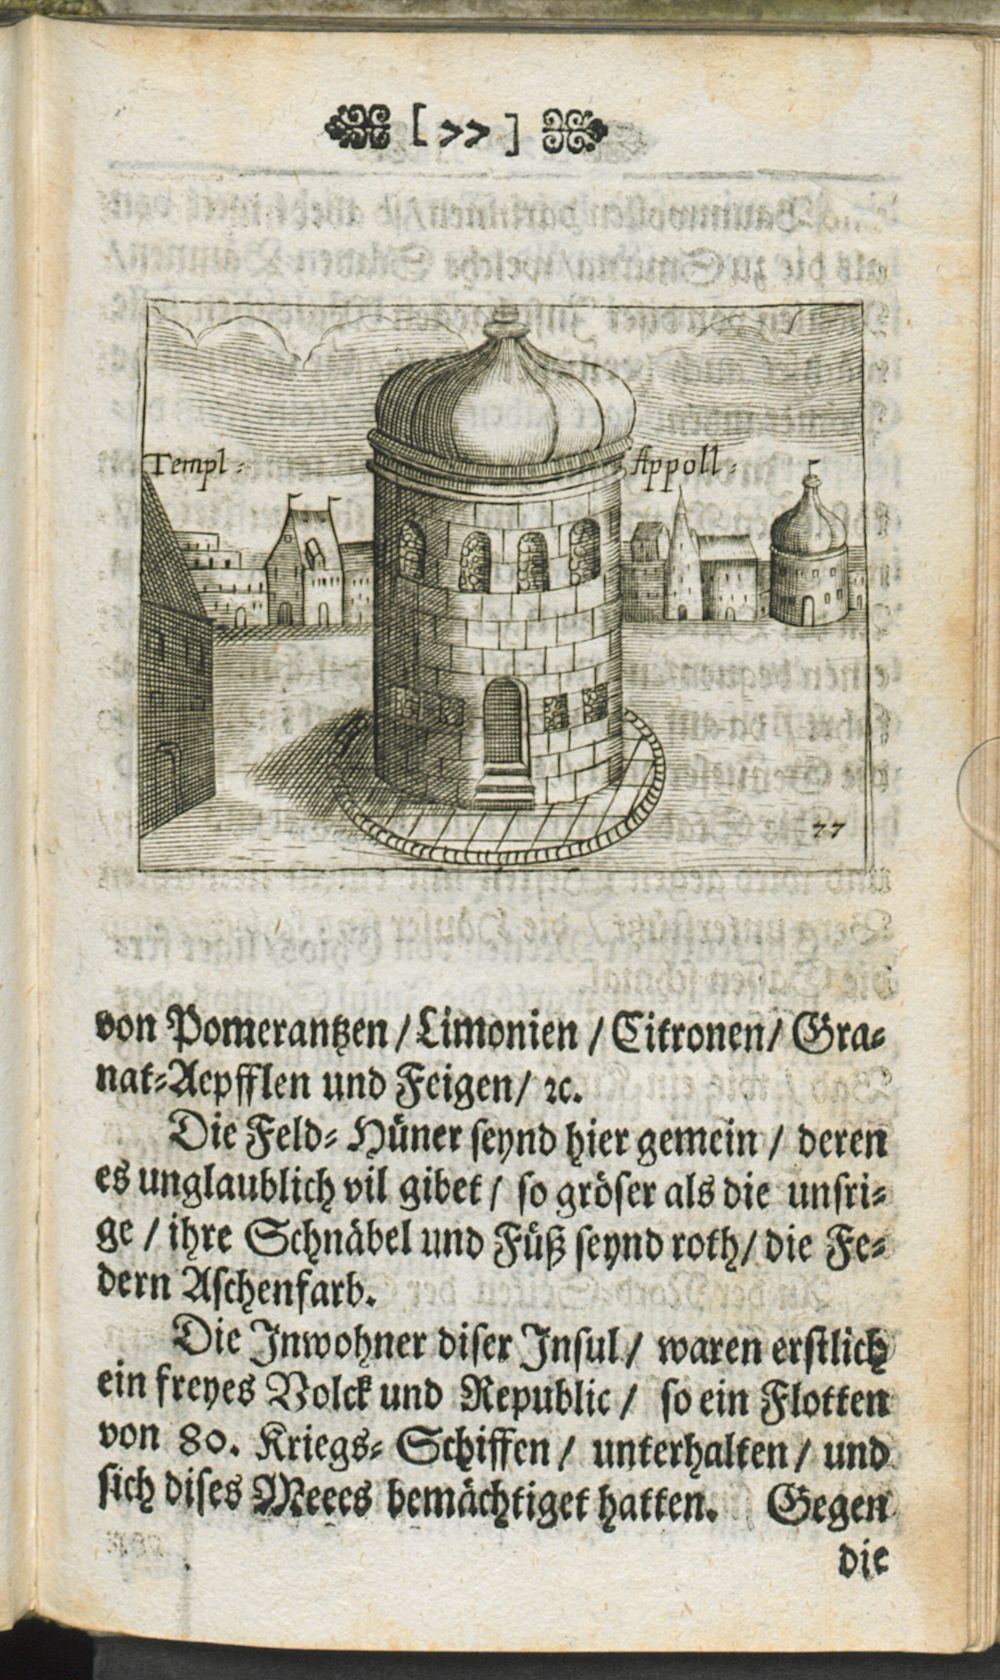 [ 77 ]
Templ: Appoll:
77
von Pomerantzen / Limonien / Citronen / Gra-
nat-Aepfflen und Feigen / ꝛc.
Die Feld-Hüner seynd hier gemein / deren
es unglaublich vil gibet / so gröser als die unsri-
ge / ihre Schnäbel und Füß seynd roth / die Fe-
dern Aschenfarb.
Die Inwohner diser Insul / waren erstlich
ein freyes Volck und Republic / so ein Flotten
von 80. Kriegs-Schiffen / unterhalten / und
sich dises Meees bemächtiget hatten. Gegen
die